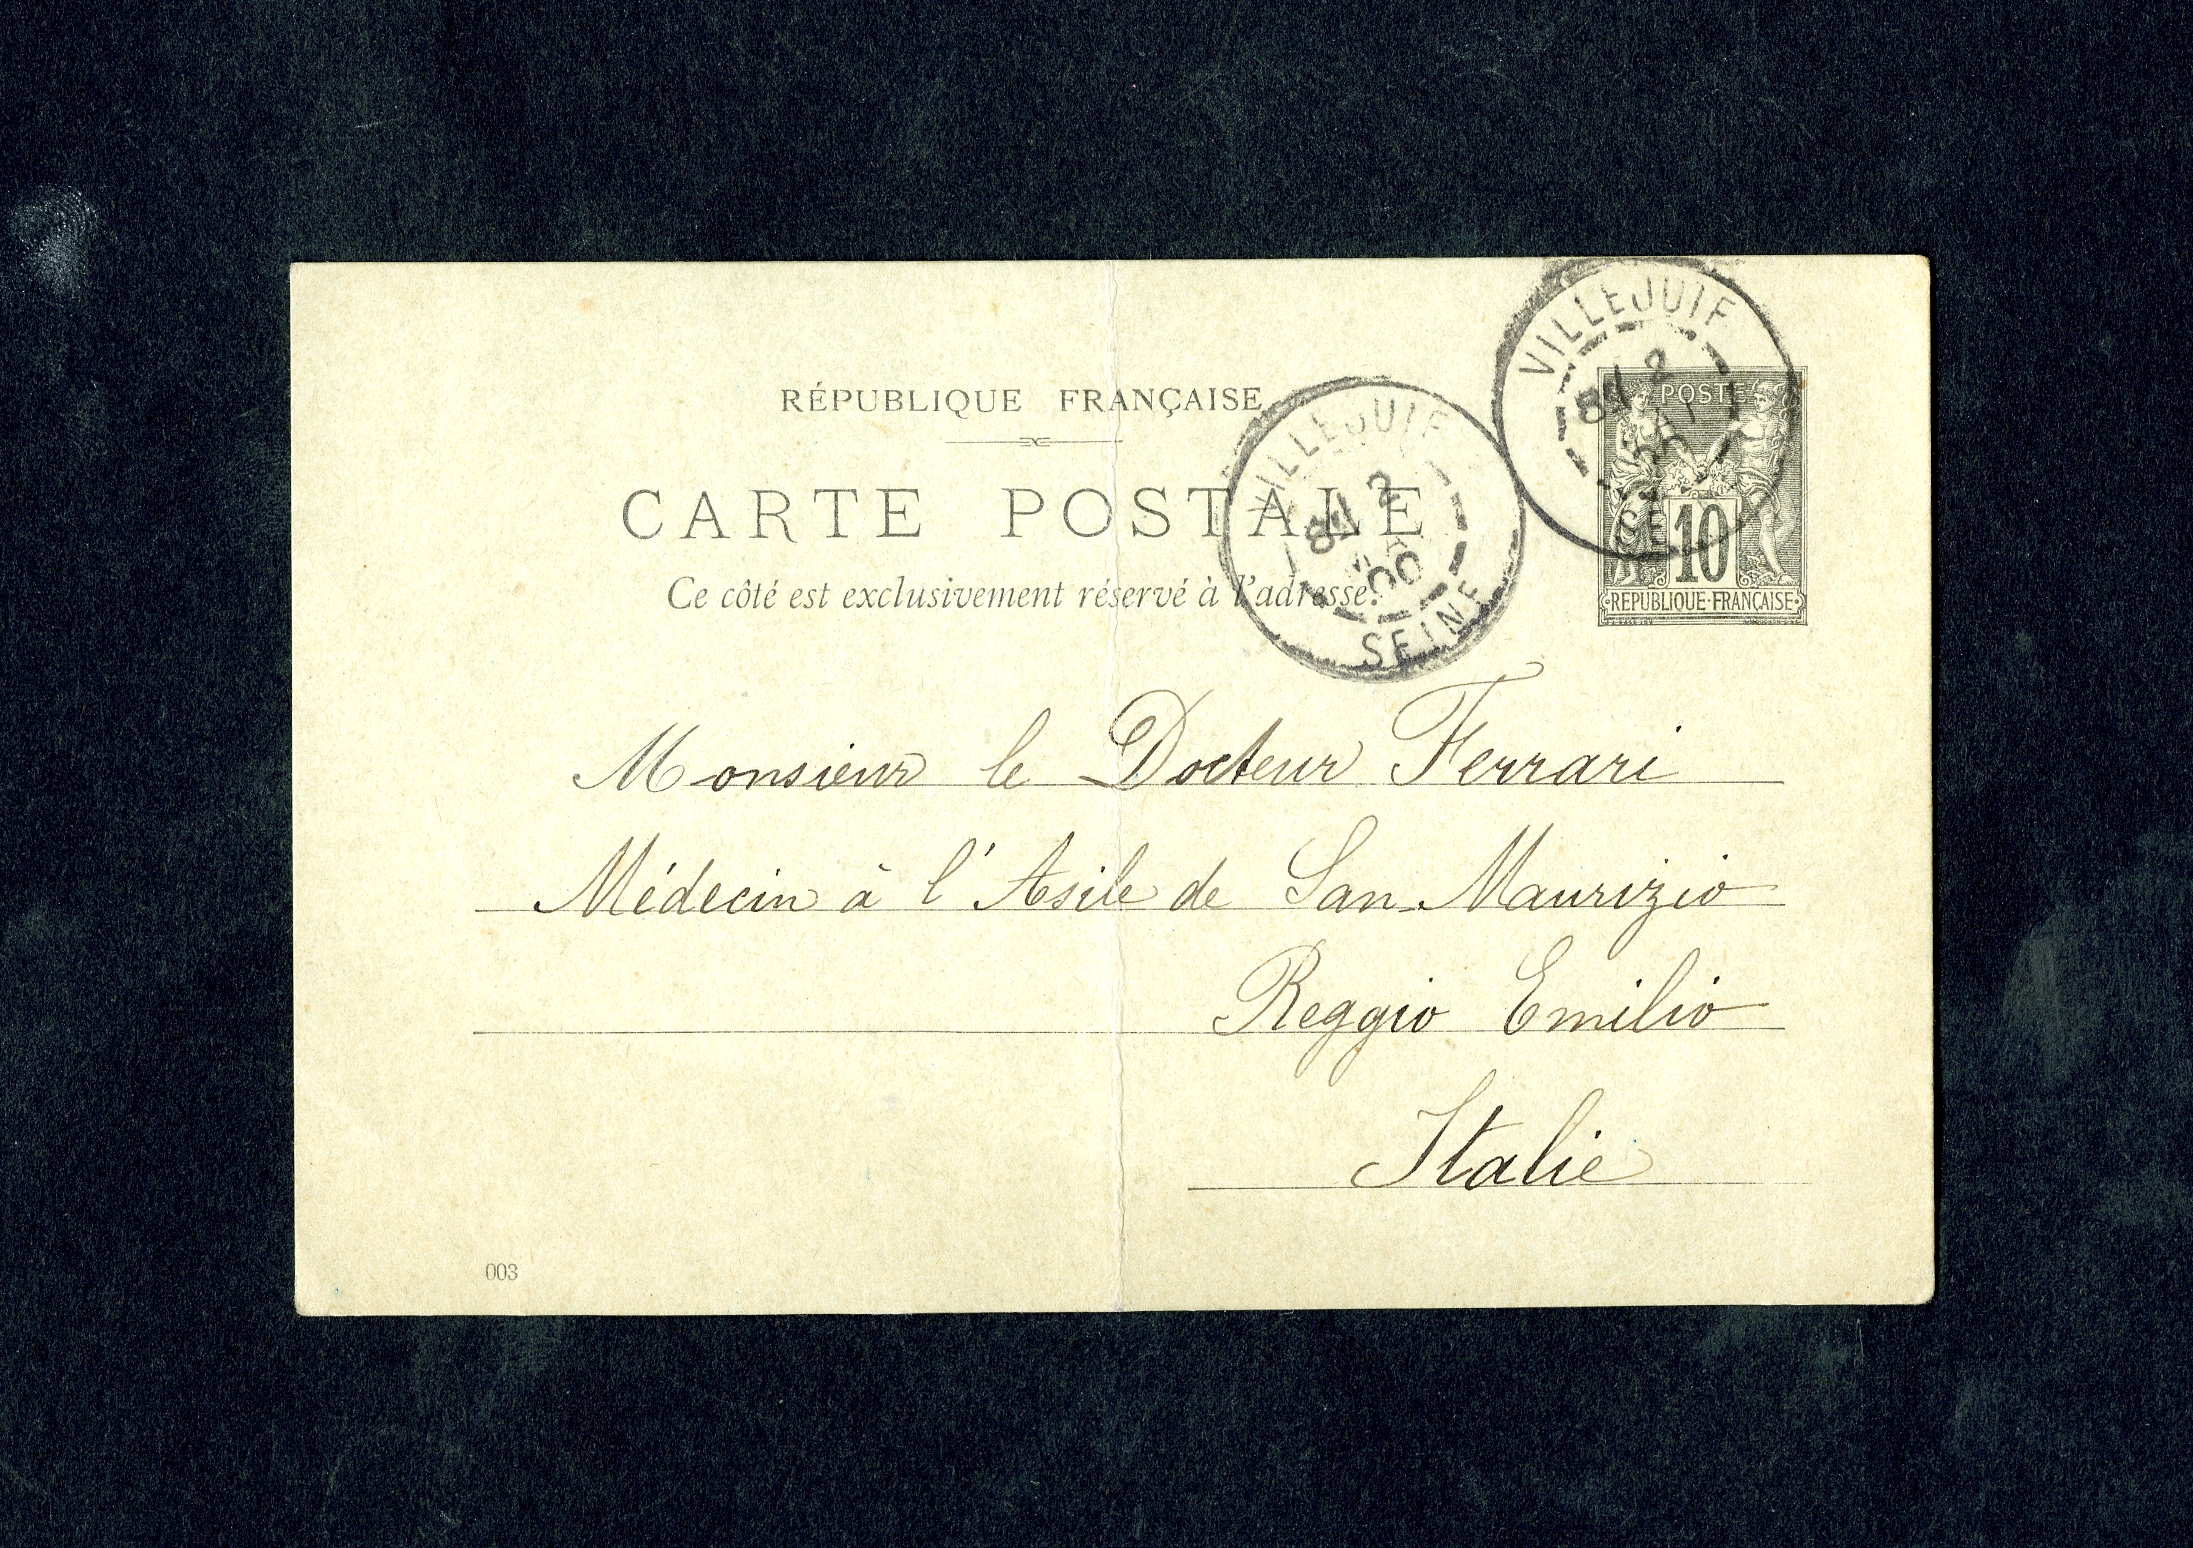 RÉPUBLIQUE FRANÇAISE
CARTE POSTALE
Ce côté est exclusivement réservé à l'adresse.
VILLEJUIF
00
SEINE
VILLEJUIF
SE
POSTE
10
REPUBLIQUE·FRANÇAISE
Monsieur le Docteur Ferrari
Médecin à l'Asile de San-Maurizio
Reggio Emilio
Italie
003